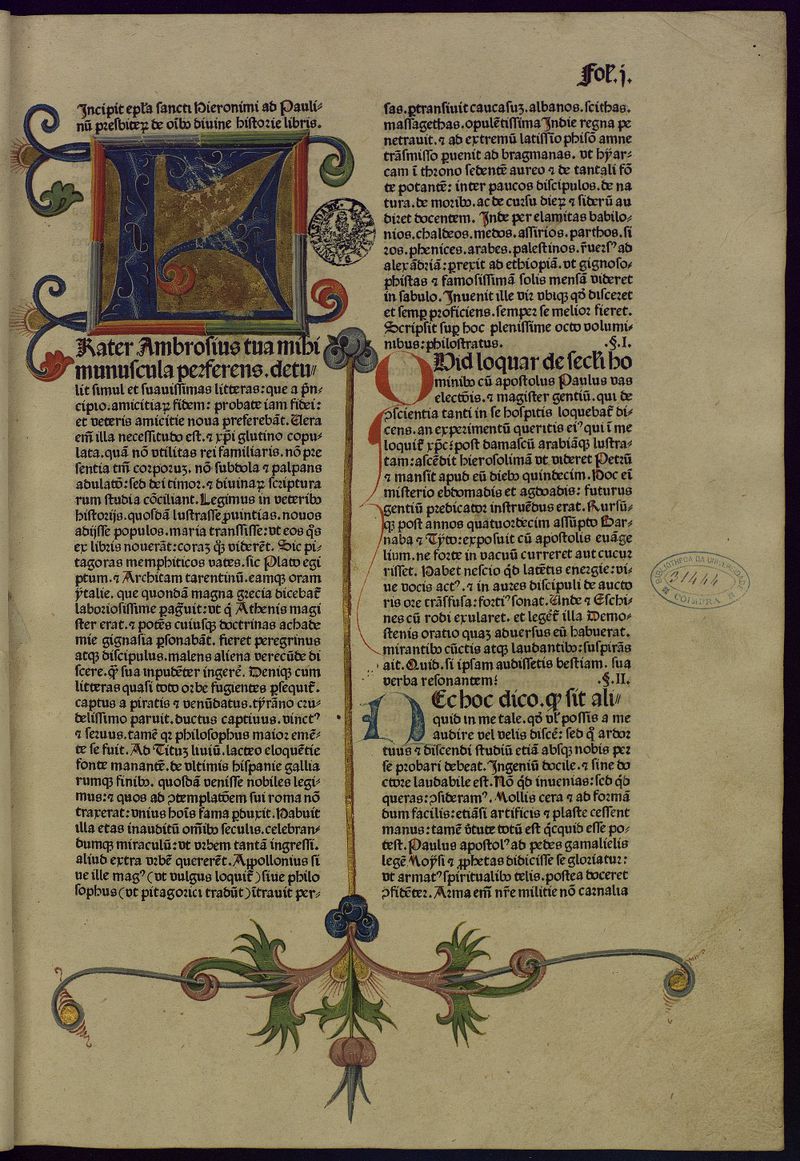 Fol. j.
Incipit epľa sancti Hieronimi ad Pauli-
nū presbiteꝝ de oībꝰ diuine historie libris.
FRater Ambrosius tua mihi
munuscula perferens. detu-
lit simul et suauissimas litteras: que a pͥn-
cipio. amicitiaꝝ fidem: probate iam fidei:
et veteris amicitie noua preferebāt. Uera
em̄ illa necessitudo est. ⁊ xp̄i glutino copu-
lata. quā nō vtilitas rei familiaris. nō pre
sentia tm̄ corporuꝫ. nō subdola ⁊ palpans
adulatō: sed dei timor. ⁊ diuinaꝝ scriptura
rum studia cōciliant. Legimus in veteribꝰ
historijs. quosdā lustrasse ꝓuintias. nouos
adijsse populos. maria transisse: vt eos q̄s
ex libris nouerāt: coraꝫ qꝫ viderēt. Sic pi-
tagoras memphiticos vates. sic Plato egi
ptum. ⁊ Architam tarentinū. eamqꝫ oram
ytalie. que quondā magna grecia dicebat̄
laboriosissime ꝑagͣuit: vt qͥ Athenis magi
ster erat. ⁊ potēs cuiusqꝫ doctrinas achade
mie gignasia ꝑsonabāt. fieret peregrinus
atqꝫ discipulus. malens aliena verecūde di
scere. qͣꝫ sua inpudēter ingerē. Deniqꝫ cum
litteras quasi toto orbe fugientes ꝑsequit̄.
captus a piratis ⁊ venūdatus. tyrāno cru-
delissimo paruit. ductus captiuus. vinctꝰ
⁊ seruus. tamē qꝛ philosophus maior emē-
te se fuit. Ad Tituꝫ liuiū. lacteo eloquētie
fonte manantē. de vltimis hispanie gallia
rumqꝫ finibꝰ. quosdā venisse nobiles legi-
mus: ⁊ quos ad ꝯtemplatōem sui roma nō
traxerat: vnius hoīs fama ꝑduxit. Habuit
illa etas inauditū om̄ibꝰ seculis. celebran-
dumqꝫ miraculū: vt vrbem tantā ingressi.
aliud extra vrbē quererēt. Appollonius si
ue ille magꝰ (vt vulgus loquit̄) siue philo
sophus (vt pitagorici tradūt) ītrauit per-
sas. ꝑtransiuit caucasuꝫ. albanos. scithas.
massagethas. opulētissima Indie regna pe
netrauit. ⁊ ad extremū latissīo phisō amne
trāsmisso ꝑuenit ad bragmanas. vt hyar-
cam ī throno sedentē aureo ⁊ de tantali fō
te potantē: inter paucos discipulos. de na
tura. de moribꝰ. ac de cursu dieꝝ ⁊ siderū au
diret docentem. Inde per elamitas babilo-
nios. chaldeos. medos. assirios. parthos. si
ros. phenices. arabes. palestinos. r̄uersꝰ ad
alexādriā: ꝑrexit ad ethiopiā. vt gignoso-
phistas ⁊ famosissimā solis mensā videret
in sabulo. Inuenit ille vir vbiqꝫ qd̄ disceret
et semꝑ proficiens. semper se melior fieret.
Scripsit suꝑ hoc plenissime octo volumi-
nibus: philostratus. .§.I.
QUid loquar de secľi ho
minibꝰ cū apostolus Paulus vas
electōis. ⁊ magister gentiū. qui de
ꝯscientia tanti in se hospitis loquebat̄ di-
cens. an experimentū queritis eiꝰ qui ī me
loquit̄ xp̄c: post damascū arabiāqꝫ lustra-
tam: ascēdit hierosolimā vt videret Petrū
⁊ mansit apud eū diebꝰ quindecim. Hoc eī
misterio ebdomadis et agdoadis: futurus
gentiū predicator instruēdus erat. Rursū-
qꝫ post annos quatuordecim assūpto Bar-
naba ⁊ Tyto: exposuit cū apostolis euāge
lium. ne forte in vacuū curreret aut cucur
risset. Habet nescio qd̄ latētis energie: vi-
ue vocis actꝰ. ⁊ in aures discipuli de aucto
ris ore trāsfusa: fortiꝰ sonat. Unde ⁊ Eschi-
nes cū rodi exularet. et leget̄ illa Demo-
stenis oratio quaꝫ aduersus eū habuerat.
mirantibꝰ cūctis atqꝫ laudantibꝰ: suspirās
ait. Quid. si ipsam audissetis bestiam. sua
verba resonantem? .§.II.
NEc hoc dico. qꝙ sit ali-
quid in me tale. qd̄ vľ possis a me
audire vel velis discē: sed qͥ ardor
tuus ⁊ discendi studiū etiā absqꝫ nobis per
se probari debeat. Ingeniū docile. ⁊ sine do
ctore laudabile est. Nō qd̄ inuenias: sed qd̄
queras: ꝯsideramꝰ. Mollis cera ⁊ ad formā
dum facilis: etiāsi artificis ⁊ plaste cessent
manus: tamē v̄tute totū est qͥcquid esse po-
test. Paulus apostolꝰ ad pedes gamalielis
legē Moysi ⁊ ꝓphetas didicisse se gloriatur:
vt armatꝰ spiritualibꝰ telis. postea doceret
ꝯfidēter. Arma em̄ nr̄e militie nō carnalia
BIBLIOTHECA DA UNIVERSIDADE
31444
COIMBRA